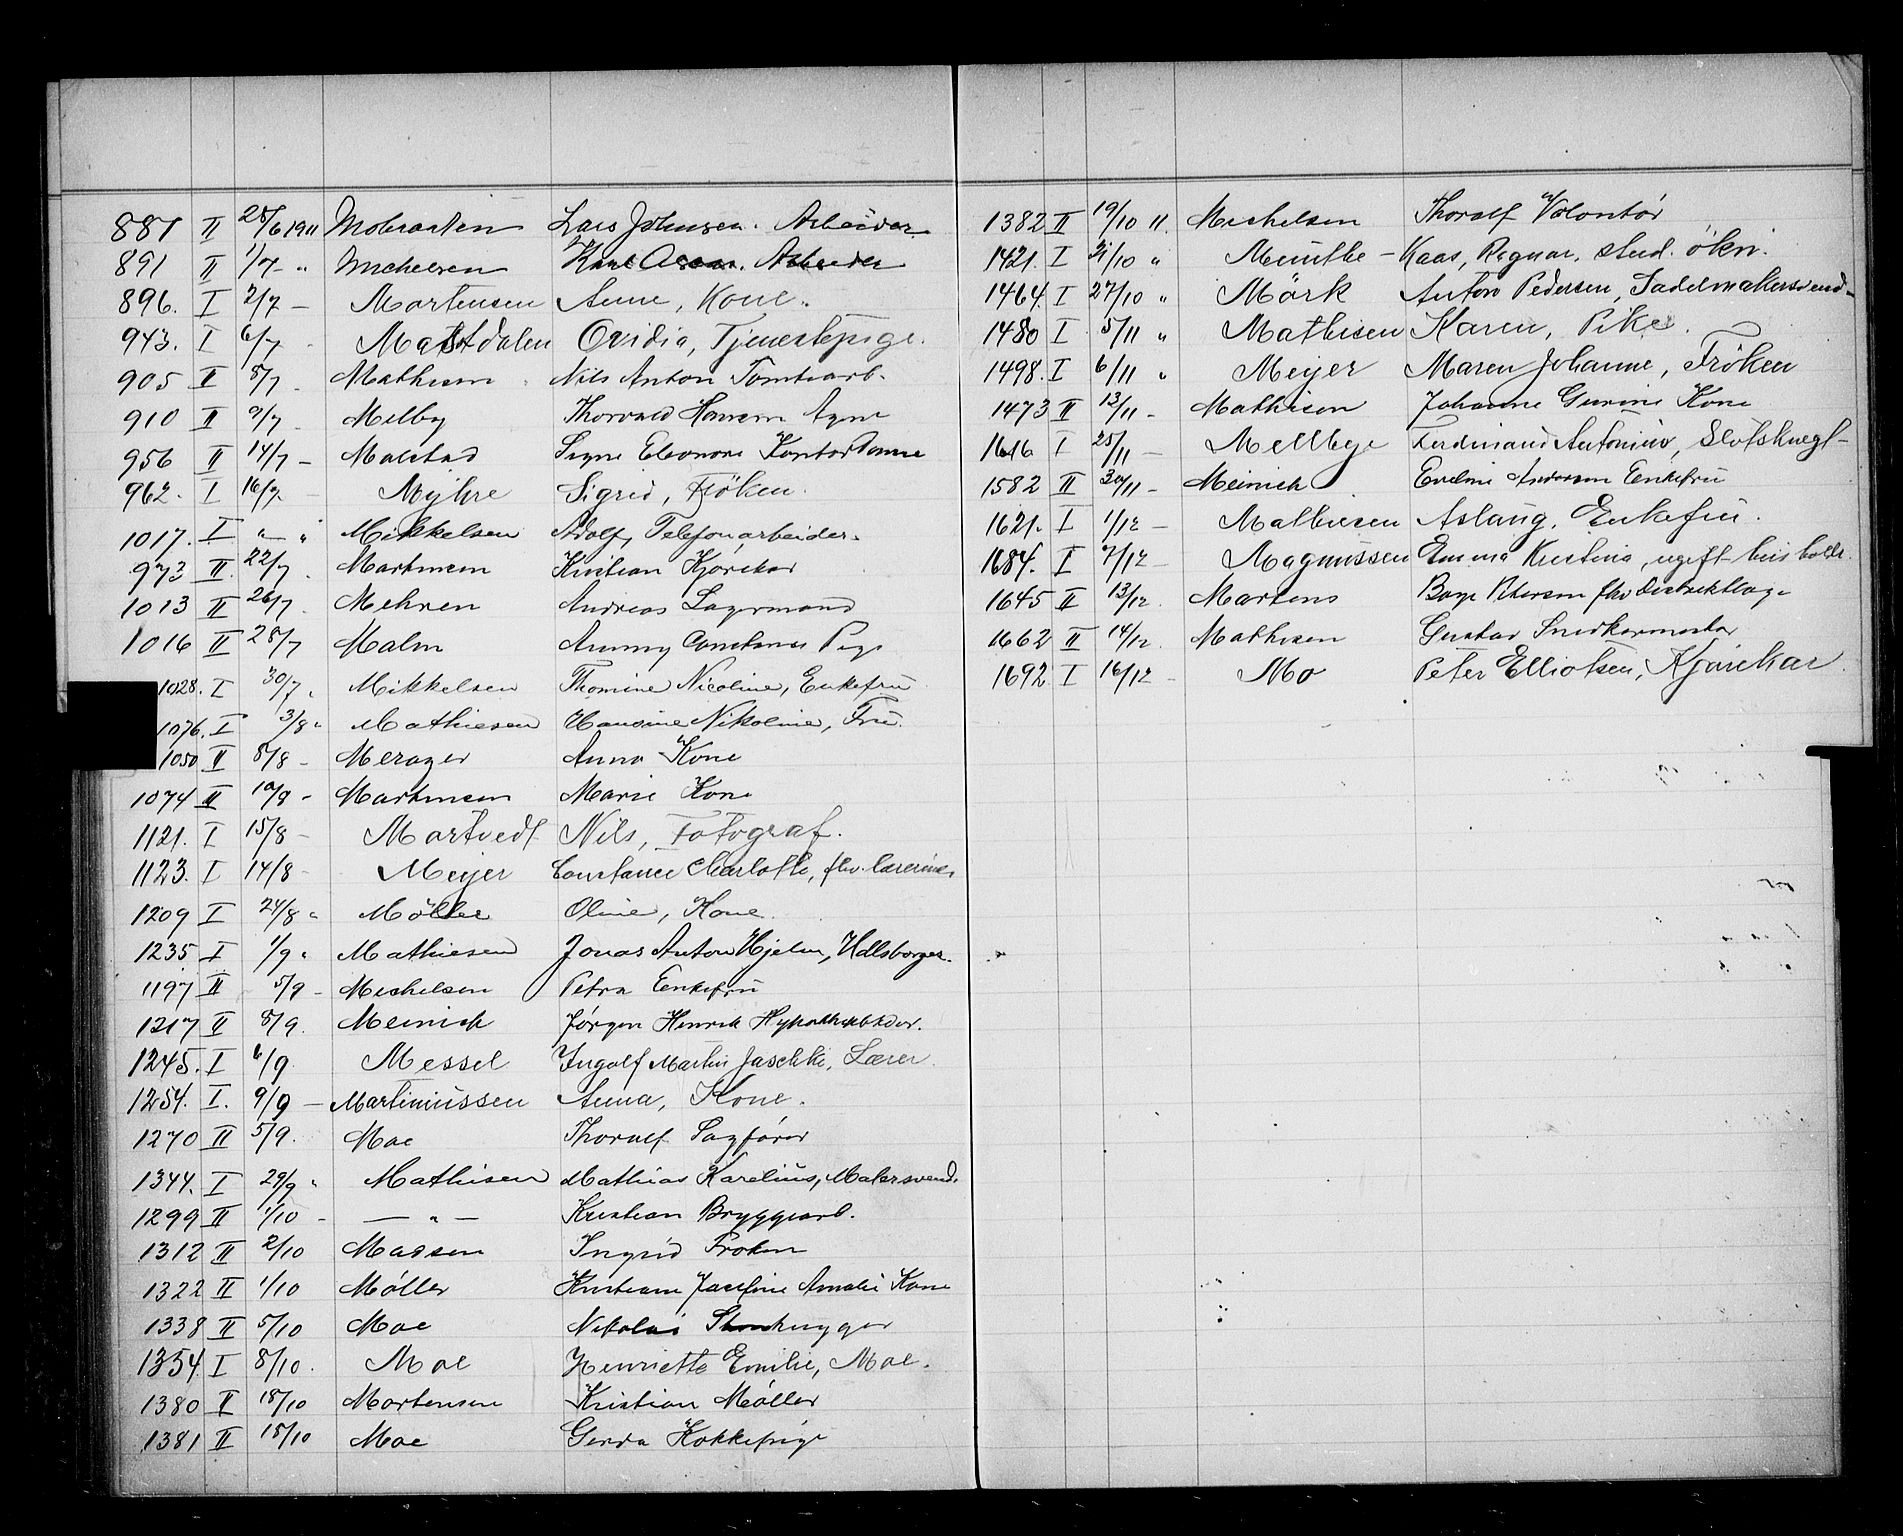 887 II 28/6 1911 Mobraaten Lars Johnsen. Arbeider
891 II 1/7 - " Michelsen Karl Oscar. Arbeider
896. I 2/7 — Martensen Anne, Kone.
943. I 6/7 Mastdalen Ovidia, Tjenestepige.
905 II 8/7 - Mathisen Nils Anton Tomtearb.
910 II 9/7 Melby Thorvald Hansen Agne
956 II 14/7 — Malstad Signe Eleonora Kontordame
962. I 16/7 — Myhre Sigrid, Fröken.
1017. I " — " Mikkelsen Adolf, Telefonarbeider.
973 II. 22/7. Martinsen Kristian Kjørekar
1013 II 26/7. Mehren Andreas Lagermand
1016 II 28/7 Malm Anny Constance Pige
1028. I 30/7 " Mikkelsen Thomine Nicoline, Enkefru
1076. I 3/8 " Mathiesen Hansine Nikoline, Fru.
1050 II 8/8 - Merager Anna Kone
1074 II 10/8 - Martinsen Marie Kone
1121. I 15/8 - Mortvedt Nils, Fotograf.
1123. I 14/8 - Meyer Constance Charlotte, fhv. lærerinde
1209 I 24/8 " Möller Oline, Kone.
1235 I 1/9 " Mathiesen Jonas Anton Hjelm,
1197 II 5/9 - Michelsen Petra Enkefru
1217 II 8/9. Meinich Jörgen Henrik
1245. I 6/9 Messel Ingolf Martin Jaschke, Lærer.
1254. I. 9/9 — Martiniussen Anna, Kone.
1270 II 5/9. Moe Thoralf Sagfører
1344. I 29/9 " Mathisen Mathias Karelius, Malersvend.
1299 II 1/10 - — " — Kristian Bryggearb.
1312 II 2/10 Madsen Ingrid Frøken
1322 II 1/10 Møller Kristiane Josefine Amalie Kone
1338 II 5/10 Moe Nikolai Stenhugger
1354. I 8/10. Moe Henriette Emilie, Moe.
1380 II 18/10 Mortensen Kristian Møller
1381 II 18/10 Moe Gerda Kokkepige
1382 II 19/10 11. Michelsen Thoralf Volontør
1421. I 21/10 " Munthe - Kaas, Ragnar, stud. ökn.
1464. I 27/10 " Mörk Anton Pedersen, Sadelmakersvend
1480 I 5/11 " Mathisen Karen, Pike.
1498. I 6/11 " Meyer Maren Johanne, Fröken
1473 II 13/11 - Mathisen Johanne Gurine Kone
1616 I 25/11 — Mellbye Ferdinand Antonius, Slotsknegt
1582 II 30/11 - Meinich Eveline Andersen Enkefru
1621. I 1/12 — Mathiesen Aslaug, Enkefru.
1684. I 7/12 — Magnussen Emma Kristina, ugift husholdr.
1645 II 13/12. Martens Børge Petersen fhv Distriktlæge
1662 II 14/12. Mathisen Gustav Snedkermester
1692 I 16/12 - Mo Peter Elliotsen, Kjørekar.